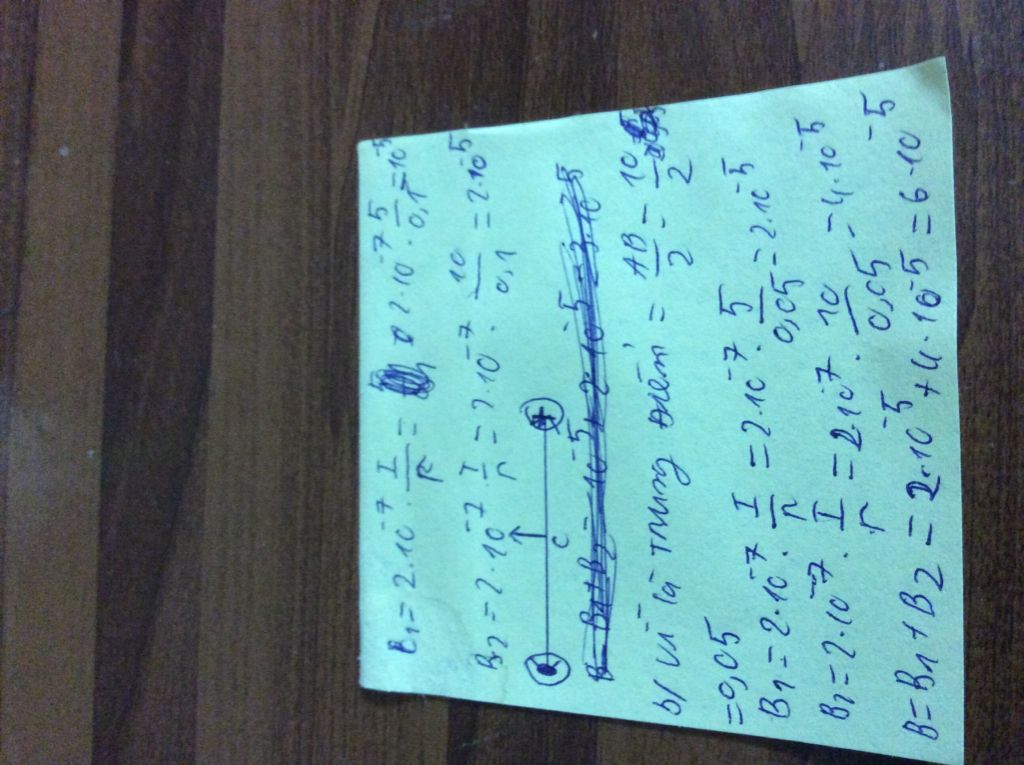 B₁ = 2.10⁻⁷ . I/r = 2.10⁻⁷ . 5/0,1 = 10⁻⁵
B₂ = 2.10⁻⁷ . I/r = 2.10⁻⁷ . 10/0,1 = 2.10⁻⁵
C
b/ vì là trung điểm = AB/2 = 10/2
= 0,05
B₁ = 2.10⁻⁷ . I/r = 2.10⁻⁷ . 5/0,05 = 2.10⁻⁵
B₂ = 2.10⁻⁷ . I/r = 2.10⁻⁷ . 10/0,05 = 4.10⁻⁵
B = B₁ + B₂ = 2.10⁻⁵ + 4.10⁻⁵ = 6.10⁻⁵